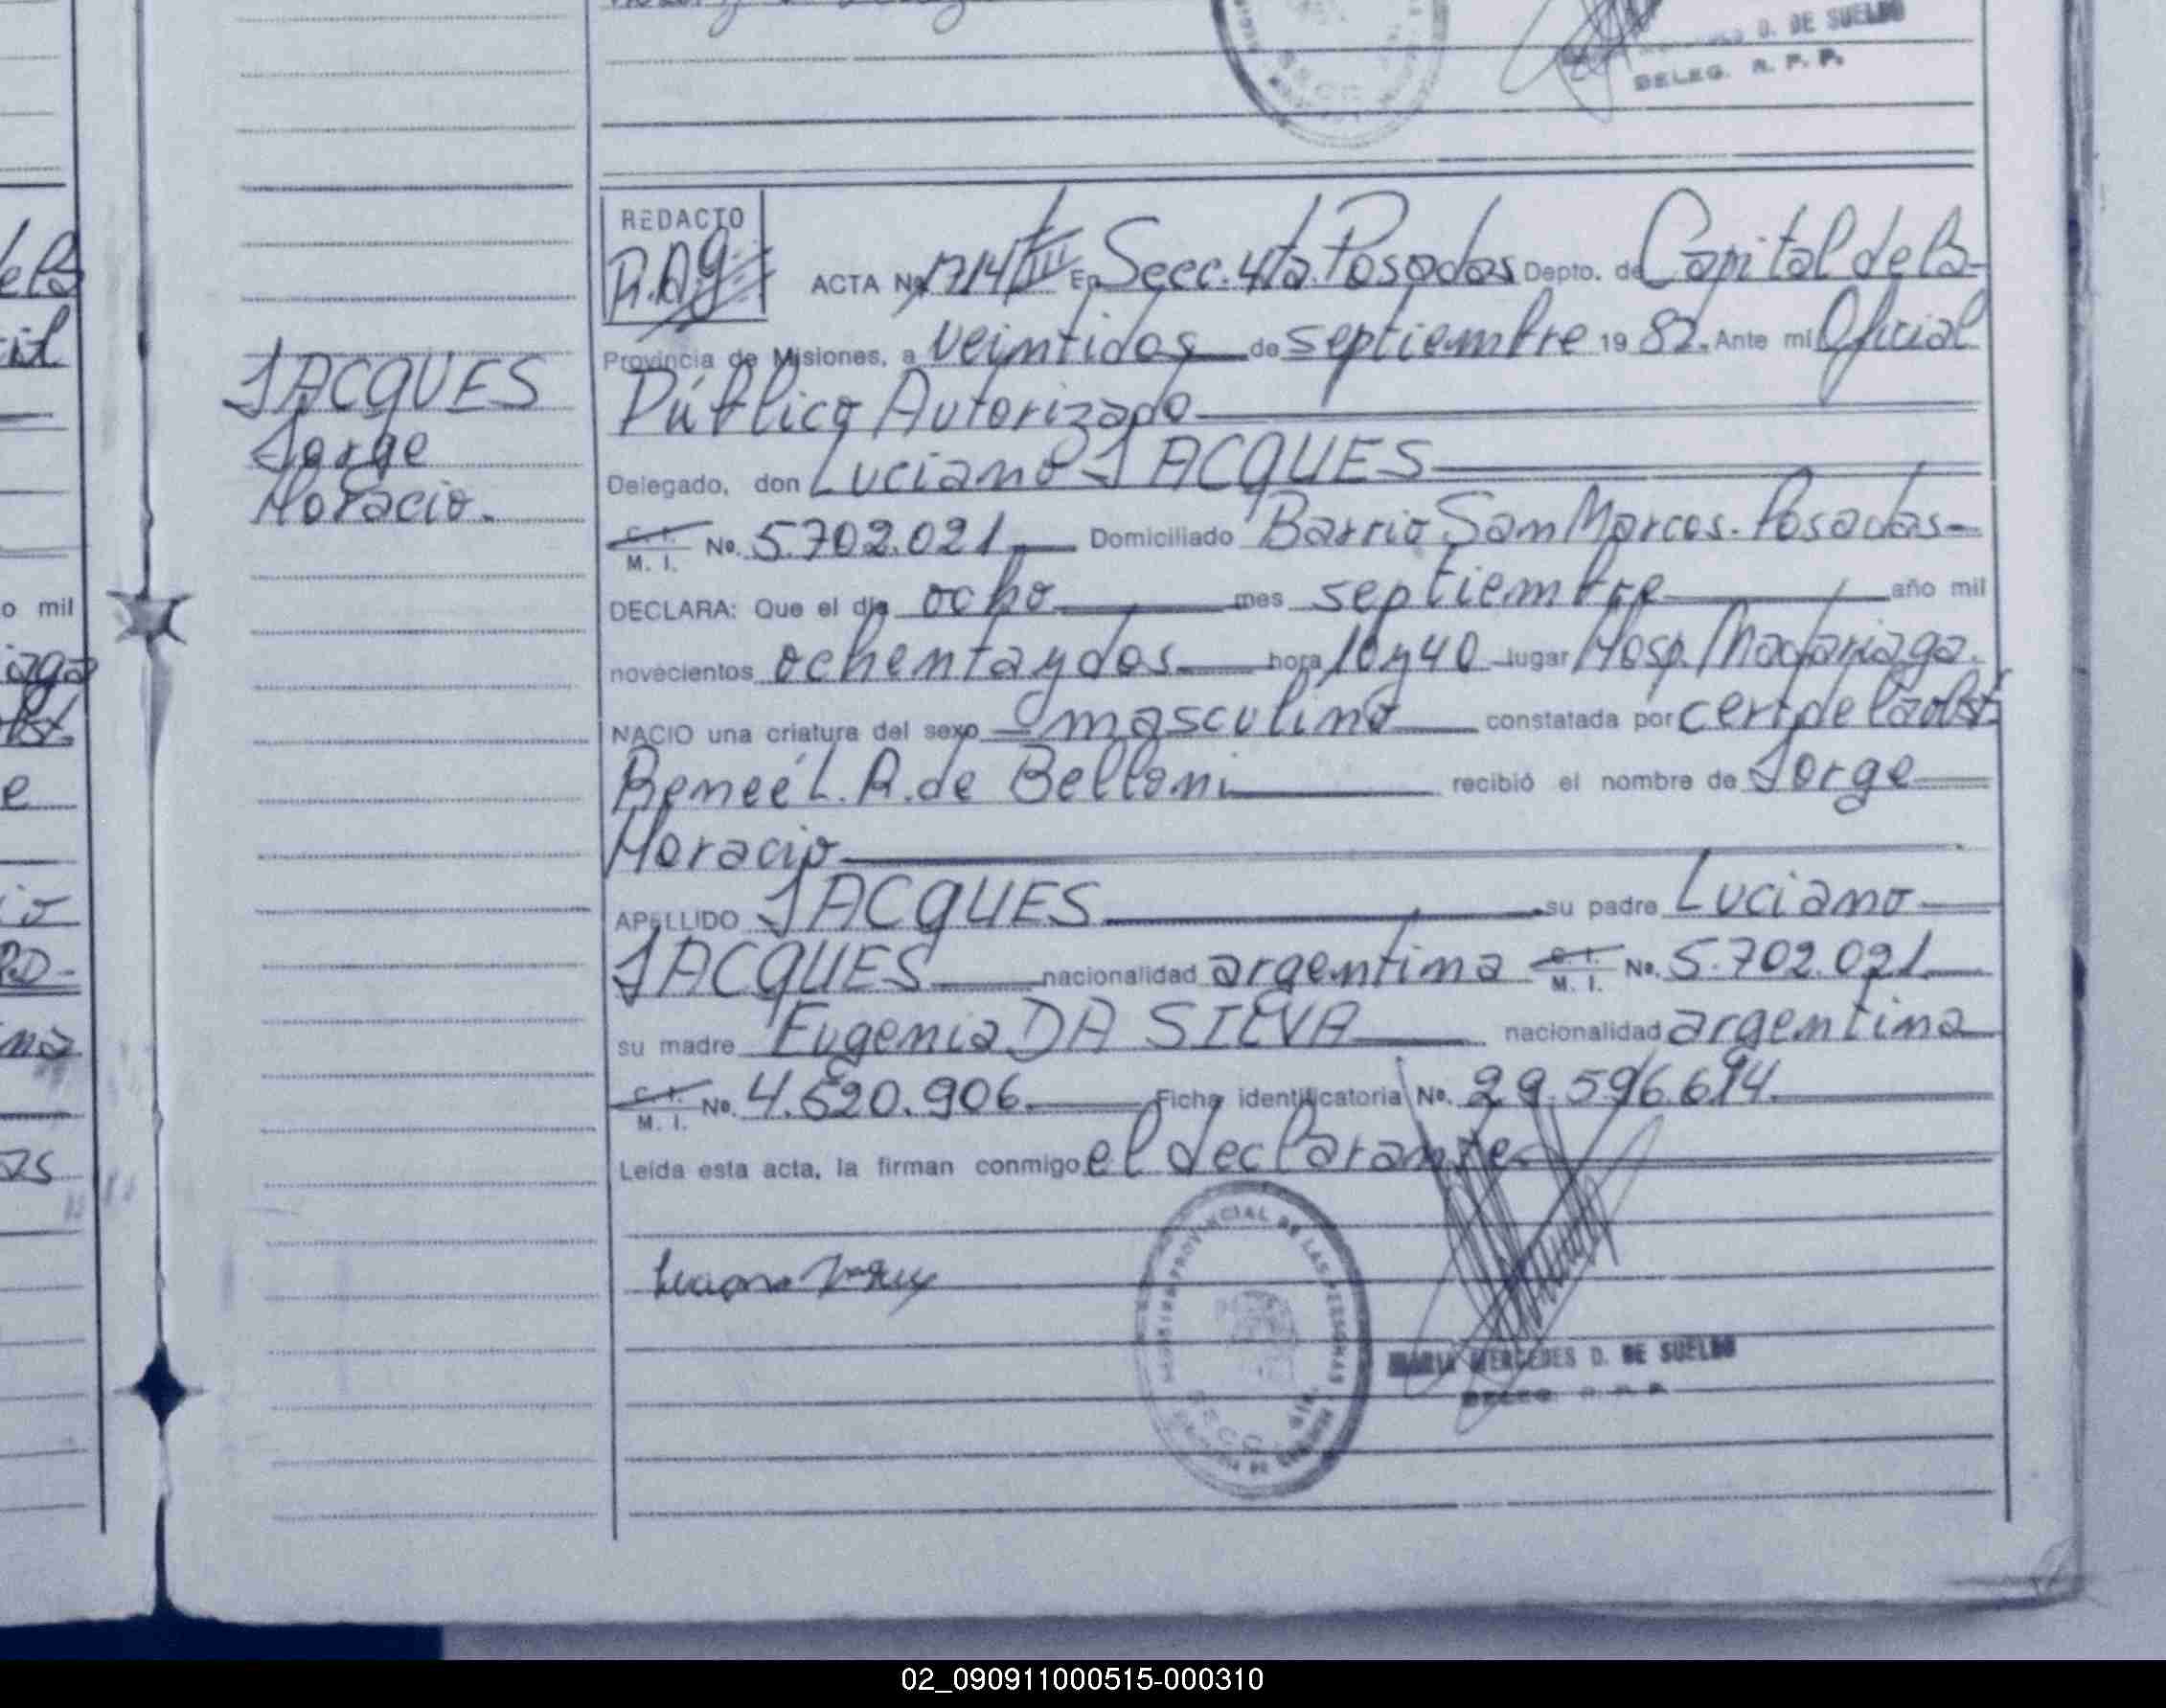 D. DE SUELDO
DELEG. R. P. P.
REDACTO
R.A.G
ACTA No 1714 En Secc. 4ta. Posadas Depto. de Capital de la
Provincia de Misiones, a veintidos de septiembre 19 82. Ante mi Oficial
Público Autorizado
Delegado, don Luciano JACQUES
C. I. M. I. No. 5.702.021 Domiciliado Barrio San Marcos. Posadas
DECLARA: Que el día ocho mes septiembre año mil
novecientos ochentaydos hora 10y40 lugar Hosp. Madariaga.
NACIO una criatura del sexo masculino constatada por cert de la obst.
Reneé L. R. de Belloni recibió el nombre de Jorge
Horacio
APELLIDO JACQUES su padre Luciano
JACQUES nacionalidad argentina C. I. M. I. No. 5.702.021
su madre Eugenia DA SILVA nacionalidad argentina
C. I. M. I. No. 4.620.906. Ficha identificatoria No. 29.596.614
Leída esta acta, la firman conmigo el declarante
JACQUES
Jorge
Horacio.
Luciano Jacques
PROVINCIAL DE LAS PERSONAS
MARIA MERCEDES D. DE SUELDO
DELEG. R. P. P.
o mil
02_090911000515-000310